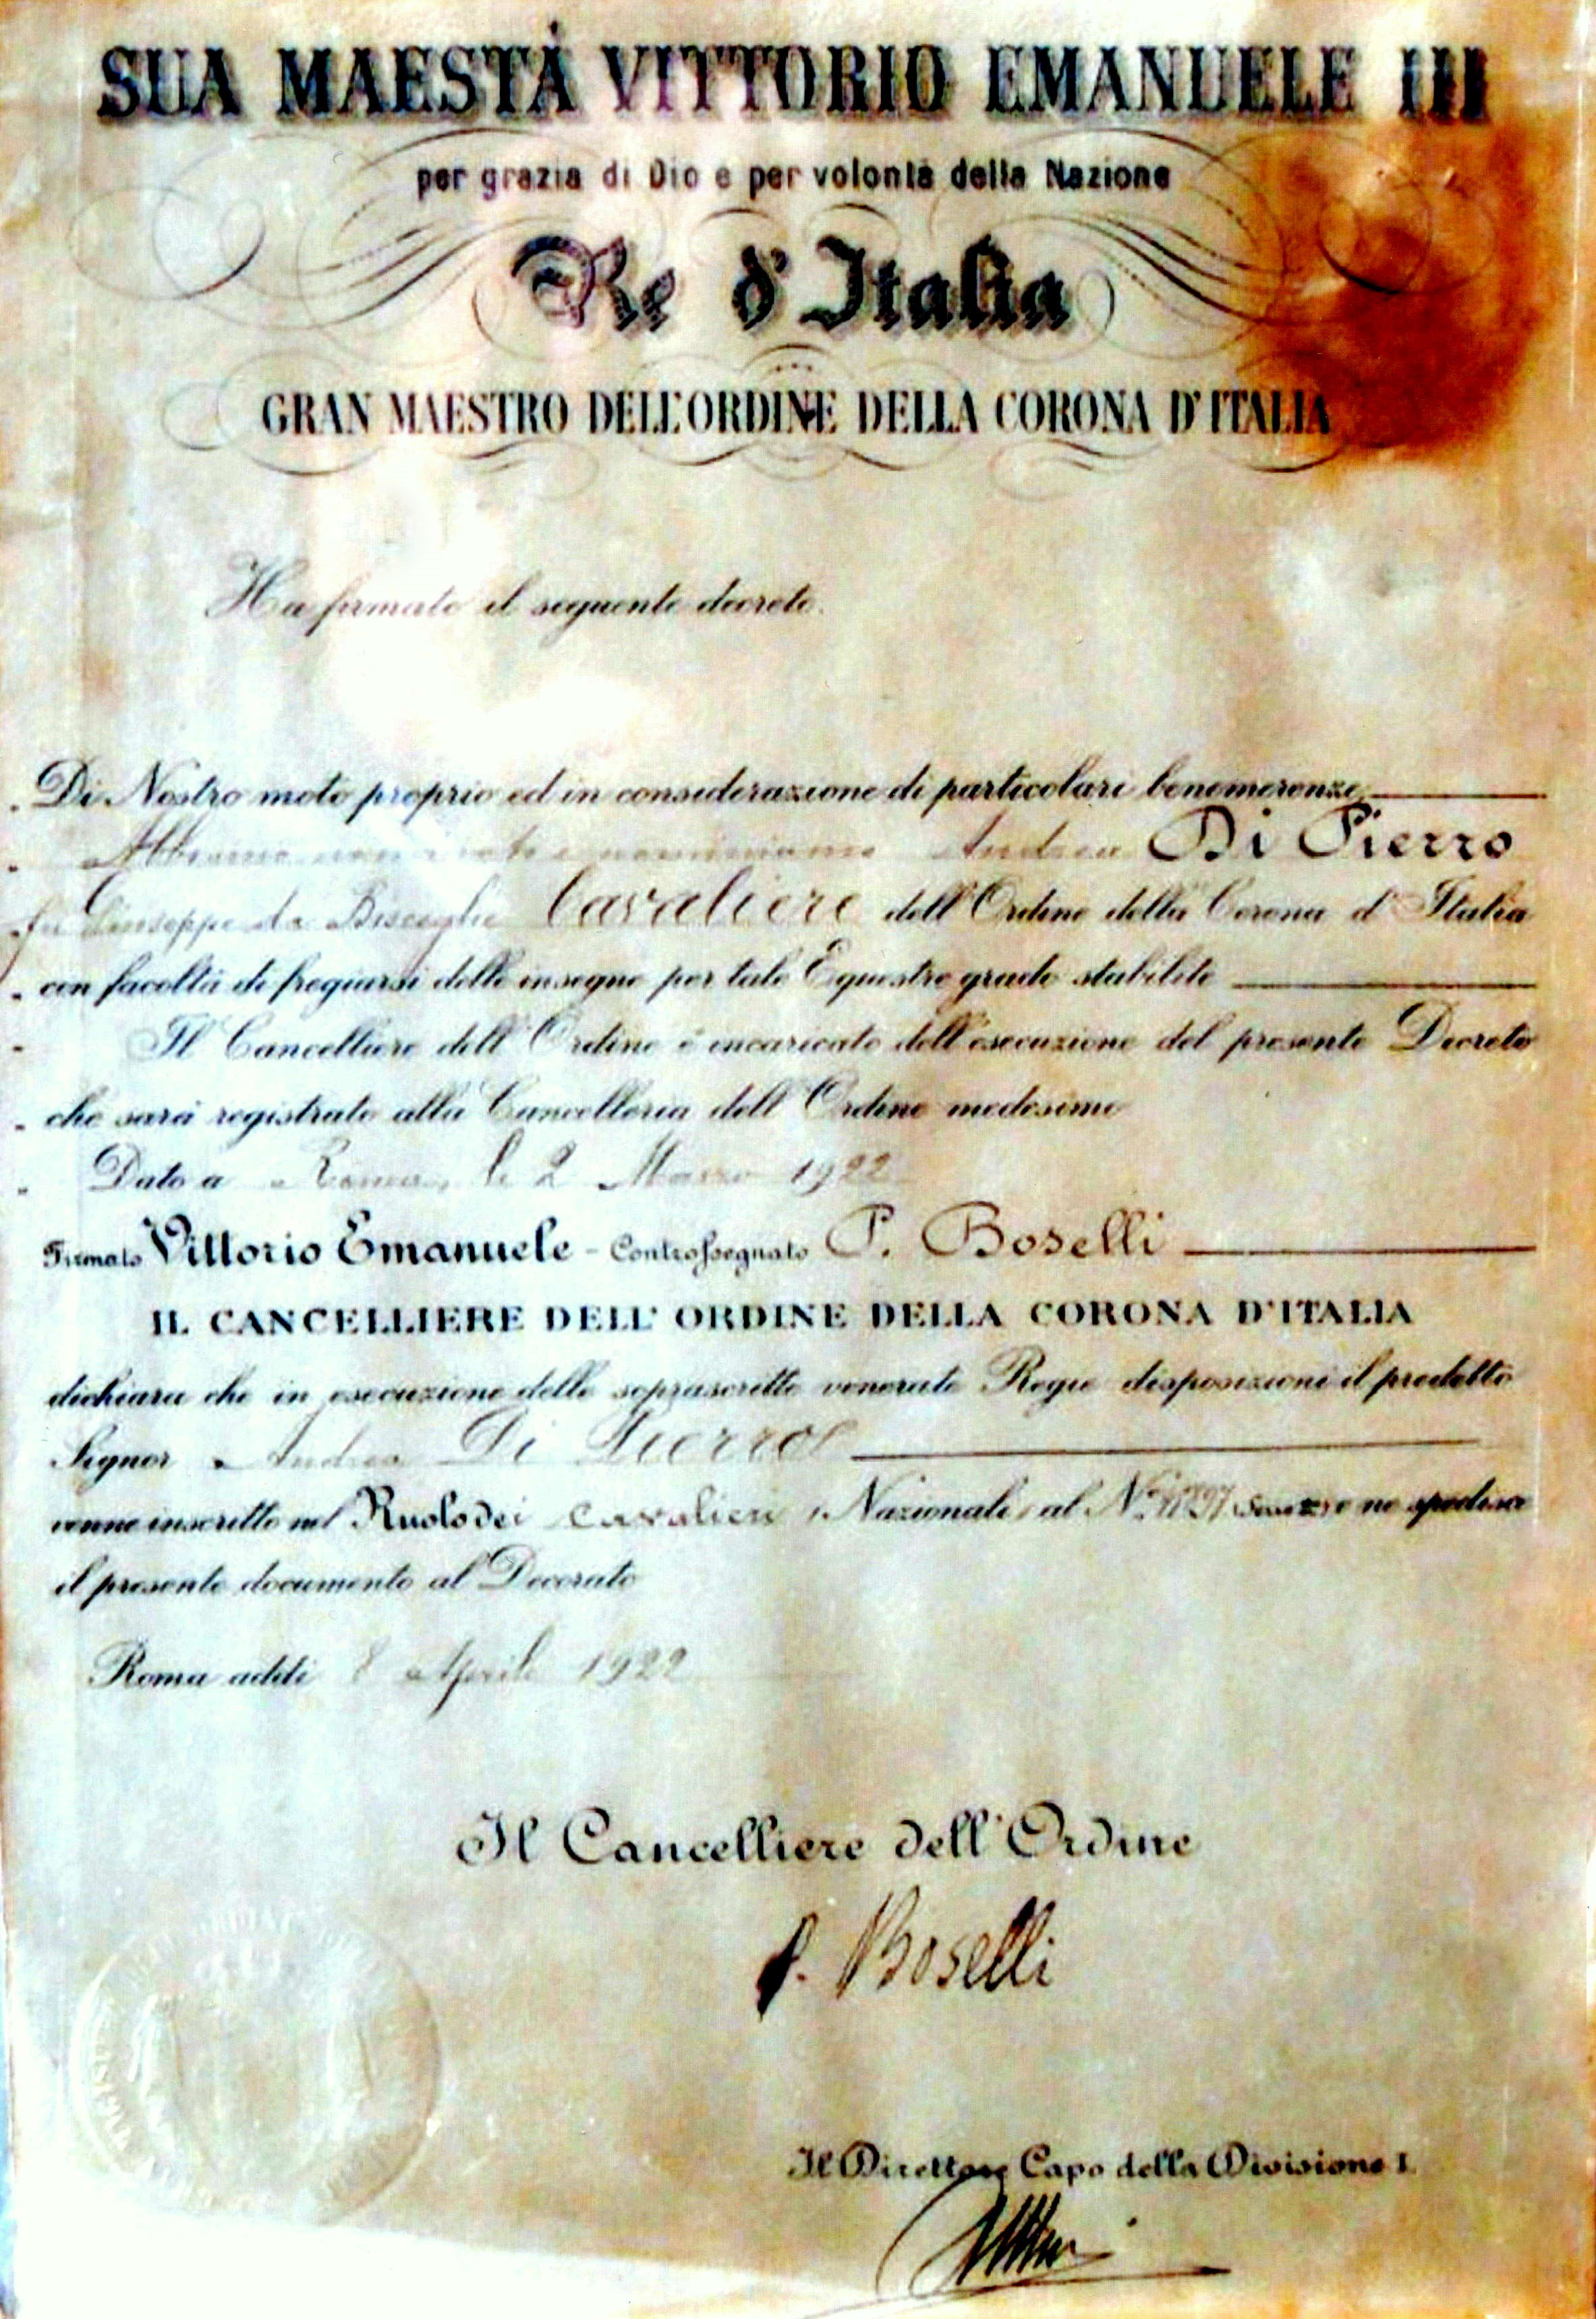 SUA MAESTÀ VITTORIO EMANUELE III
per grazia di Dio e per volontà della Nazione
Re d'Italia
GRAN MAESTRO DELL'ORDINE DELLA CORONA D'ITALIA
Ha firmato il seguente decreto.
Di Nostro moto proprio ed in considerazione di particolari benemerenze
Abbiamo nominato e nominiamo Andrea Di Pierro
fu Giuseppe da Bisceglie Cavaliere dell'Ordine della Corona d'Italia
con facoltà di fregiarsi delle insegne per tale Equestre grado stabilite
Il Cancelliere dell'Ordine è incaricato dell'esecuzione del presente Decreto
che sarà registrato alla Cancelleria dell'Ordine medesimo
Dato a Roma, li 2 Marzo 1922
Firmato Vittorio Emanuele - Controssegnato P. Boselli
IL CANCELLIERE DELL'ORDINE DELLA CORONA D'ITALIA
dichiara che in esecuzione delle soprascritte venerate Regie disposizioni il predetto
Signor Andrea Di Pierro
venne inscritto nel Ruolo dei Cavalieri (Nazionali) al N. e ne spedisce
il presente documento al Decorato
Roma addì 8 Aprile 1922
Il Cancelliere dell'Ordine
P. Boselli
Il Direttore Capo della Divisione I.